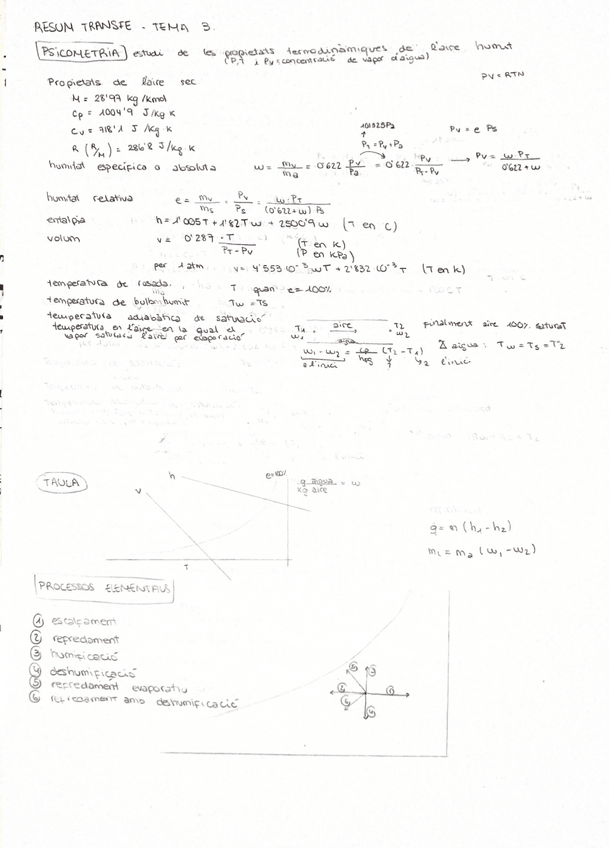 RESUM TRANSFE - TEMA 3.
PSICOMETRIA estudi de les propietats termodinàmiques de l'aire humit
(P, T i Pv = concentració de vapor d'aigua)
Propietats de l'aire sec
PV = RTN
M = 28'97 kg/kmol
Cp = 1004'9 J/kg K
Cv = 718'1 J/kg K
R (R/M) = 286'8 J/kg K
101325Pa
PT = Pv + Pa
Pv = e Ps
humitat específica o absoluta w = mv/ma = 0'622 Pv/Pa = 0'622 Pv/(PT - Pv) → Pv = w PT/(0'622 + w)
humitat relativa e = mv/ms = Pv/Ps = w · PT/((0'622 + w) Ps)
entalpia h = 1'005T + 1'82Tw + 2500'9w (T en C)
volum v = 0'287 · T/(PT - Pv) (T en K)
(P en kPa)
per 1 atm v = 4'553·10⁻³ wT + 2'832·10⁻³ T (T en K)
temperatura de rosada. T quan e = 100%
temperatura de bulb humit Tw = Ts
temperatura adiabàtica de saturació
temperatura en l'aire en la qual el
vapor saturaria l'aire per evaporació
T1 w1 aire T2 w2 Finalment aire 100% saturat
aigua
Δ aigua : Tw = Ts = T2
w1 - w2 = cp/hfg (T2 - T1)
a l'inici
2 l'inici
TAULA
h
v
e=100%
g aigua/kg aire = w
T
q = m (h1 - h2)
mL = ma (w1 - w2)
PROCESSOS ELEMENTALS
1 escalfament
2 refredament
3 humificació
4 deshumificació
5 refredament evaporatiu
6 refredament amb deshumificació
5 3
2 1
6 4